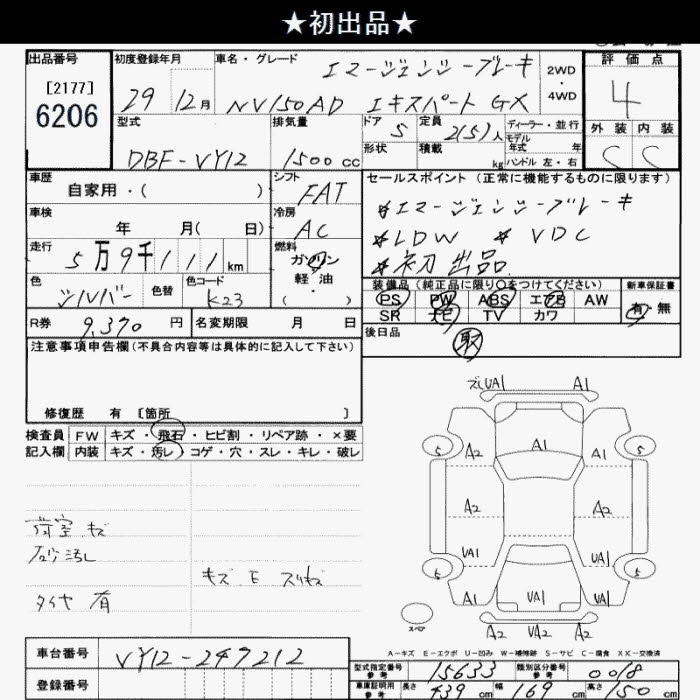 ★初出品★
出品番号
[2177]
6206
初度登録年月
29 12月
車名・グレード
エマージェンシーブレーキ
NV150AD エキスパート GX
2WD
・
4WD
評価点
4
外装 内装
C C
型式
DBF-VY12
排気量
1500cc
ドア
5
定員
2(5)人
形状
積載
kg
ディーラー・並行
モデル
年式 年
ハンドル 左・右
車歴
自家用・( )
シフト
FAT
車検
年 月( 日)
冷房
AC
走行
5万9千111km
燃料
ガソリン
軽油
( ・ )
色
シルバー
色替
色コード
K23
R券
9,370円
名変期限 月 日
セールスポイント(正常に機能するものに限ります)
*エマージェンシーブレーキ
*LDW *VDC
*初出品.
装備品(純正品に限り○をつけてください)
PS PW ABS エアB AW
SR ナビ TV カワ
新車保証書
有・無
後日品
取
注意事項申告欄(不具合内容等は具体的に記入して下さい)
修復歴 有 [箇所 ]
検査員 FW キズ・飛石・ヒビ割・リペア跡・×要
記入欄 内装 キズ・汚レ・コゲ・穴・スレ・キレ・破レ
荷室 キズ
汚レ
キズ E スリキズ
タイヤ 有
UA1 A1
5 A2 A1 A2 5
A2 A2
5 UA1 UA1 5
A1 UA1 UA1
スペア
A2 UA2 A2
A-キズ E-エクボ U-凹み W-補修跡 S-サビ C-腐食 XX-交換済
車台番号
VY12-247212
登録番号
型式指定番号
参考
15633
類別区分番号
参考
0018
車庫証明用
参考
長さ 439cm 幅 169cm 高さ 150cm